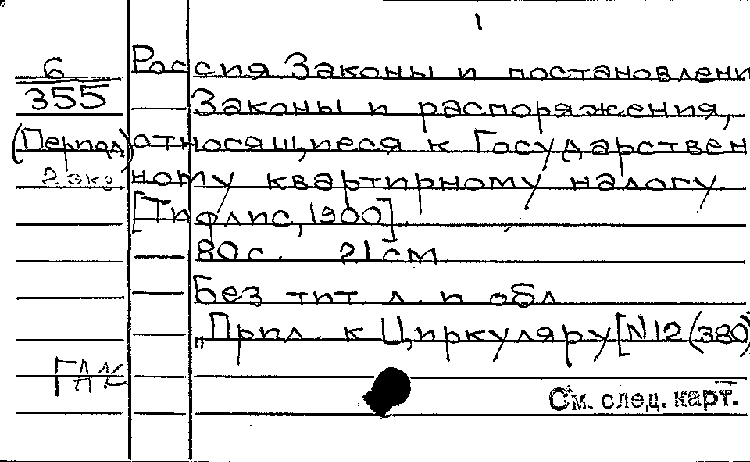 1
6 Россия Законы и постановлени
355 Законы и распоряжения,
(Период) относящиеся к Государствен
2 экз. ному квартирному налогу.
[Тифлис, 1900]
80 с. 21 см
Без тит. л. и обл
"Прил. к Циркуляру [N12 (380)
ГАК
См. след. карт.